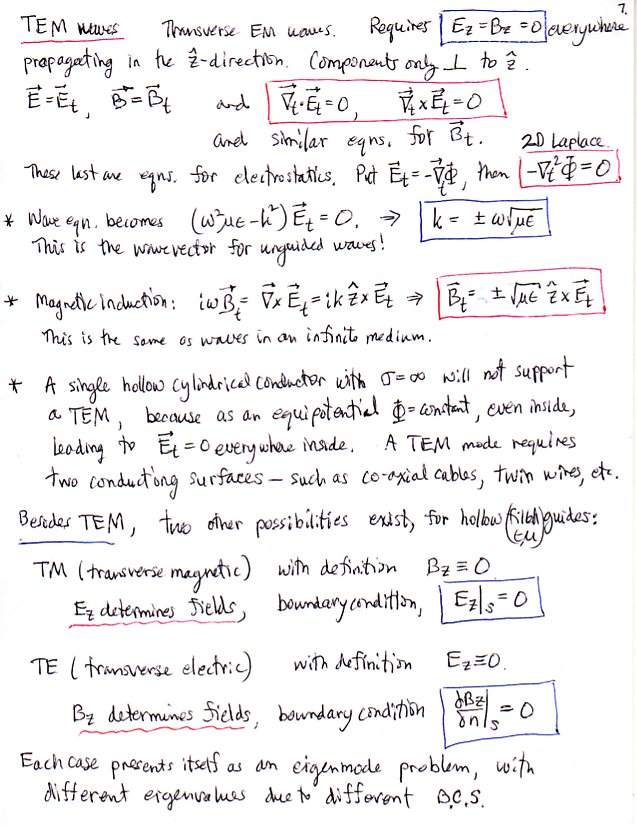 7.
TEM waves Transverse EM waves. Requires E_z = B_z = 0 everywhere
propagating in the ẑ-direction. Components only ⊥ to ẑ.
E⃗ = E⃗_t, B⃗ = B⃗_t and ∇⃗_t · E⃗_t = 0, ∇⃗_t × E⃗_t = 0
and similar eqns. for B⃗_t. 2D Laplace.
These last are eqns. for electrostatics. Put E⃗_t = -∇⃗_t Φ, then -∇_t² Φ = 0
* Wave eqn. becomes (ω²με - k²) E⃗_t = 0, ⇒ k = ± ω√με
This is the wavevector for unguided waves!
* Magnetic induction: iωB⃗_t = ∇⃗ × E⃗_t = ik ẑ × E⃗_t ⇒ B⃗_t = ± √με ẑ × E⃗_t
This is the same as waves in an infinite medium.
* A single hollow cylindrical conductor with σ = ∞ will not support
a TEM, because as an equipotential Φ = constant, even inside,
leading to E⃗_t = 0 everywhere inside. A TEM mode requires
two conducting surfaces – such as co-axial cables, twin wires, etc.
Besides TEM, two other possibilities exist, for hollow (filled ε,μ) guides:
TM (transverse magnetic) with definition B_z ≡ 0
E_z determines fields, boundary condition, E_z|_S = 0
TE (transverse electric) with definition E_z ≡ 0.
B_z determines fields, boundary condition ∂B_z/∂n|_S = 0
Each case presents itself as an eigenmode problem, with
different eigenvalues due to different B.C.S.